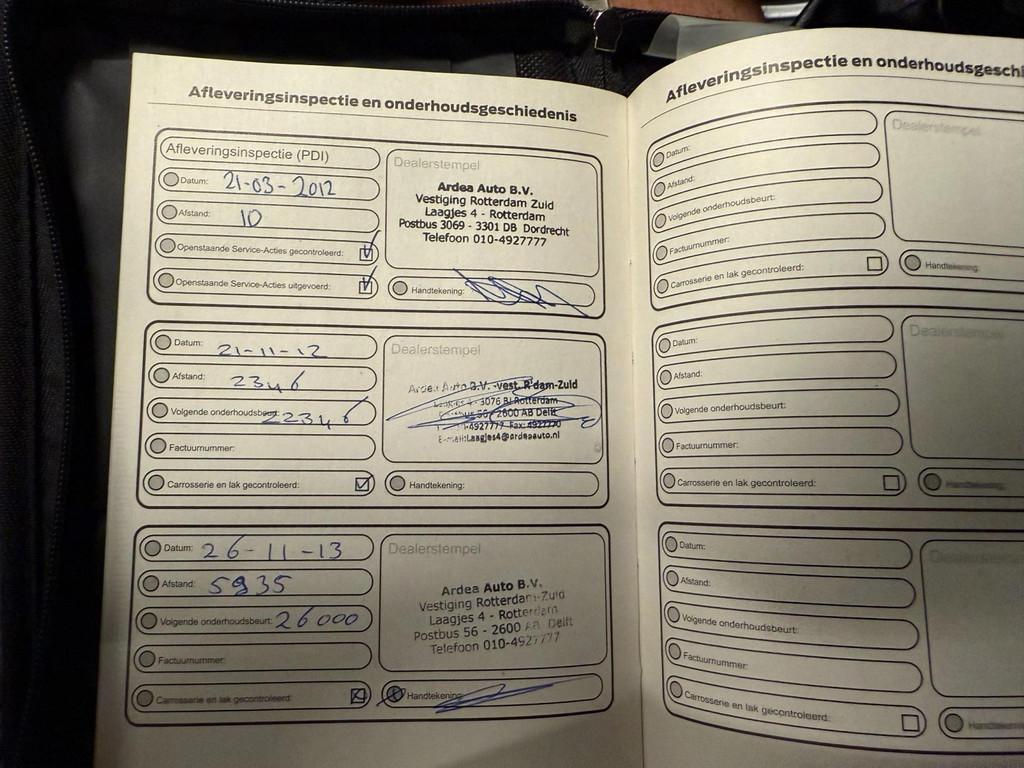 Afleveringsinspectie en onderhoudsgeschiedenis
Afleveringsinspectie (PDI)
Datum: 21-03-2012
Afstand: 10
Openstaande Service-Acties gecontroleerd:
Openstaande Service-Acties uitgevoerd:
Dealerstempel
Ardea Auto B.V.
Vestiging Rotterdam Zuid
Laagjes 4 - Rotterdam
Postbus 3069 - 3301 DB Dordrecht
Telefoon 010-4927777
Handtekening:
Datum: 21-11-12
Afstand: 2346
Volgende onderhoudsbeurt: 22346
Factuurnummer:
Carrosserie en lak gecontroleerd:
Dealerstempel
Ardea Auto B.V. -vest. R'dam-Zuid
4 - 3076 BJ Rotterdam
56 - 2600 AB Delft
-4927777 Fax: 4927770
E-mail:Laagjes4@ardeaauto.nl
Handtekening:
Datum: 26-11-13
Afstand: 5935
Volgende onderhoudsbeurt: 26000
Factuurnummer:
Carrosserie en lak gecontroleerd:
Dealerstempel
Ardea Auto B.V.
Vestiging Rotterdam-Zuid
Laagjes 4 - Rotterdam
Postbus 56 - 2600 AB Delft
Telefoon 010-4927777
Handtekening:
Afleveringsinspectie en onderhoudsgeschi
Datum:
Afstand:
Volgende onderhoudsbeurt:
Factuurnummer:
Carrosserie en lak gecontroleerd:
Dealerstempel
Handtekening:
Datum:
Afstand:
Volgende onderhoudsbeurt:
Factuurnummer:
Carrosserie en lak gecontroleerd:
Dealerstempel
Handtekening:
Datum:
Afstand:
Volgende onderhoudsbeurt:
Factuurnummer:
Carrosserie en lak gecontroleerd:
Dealerstempel
Handtekening